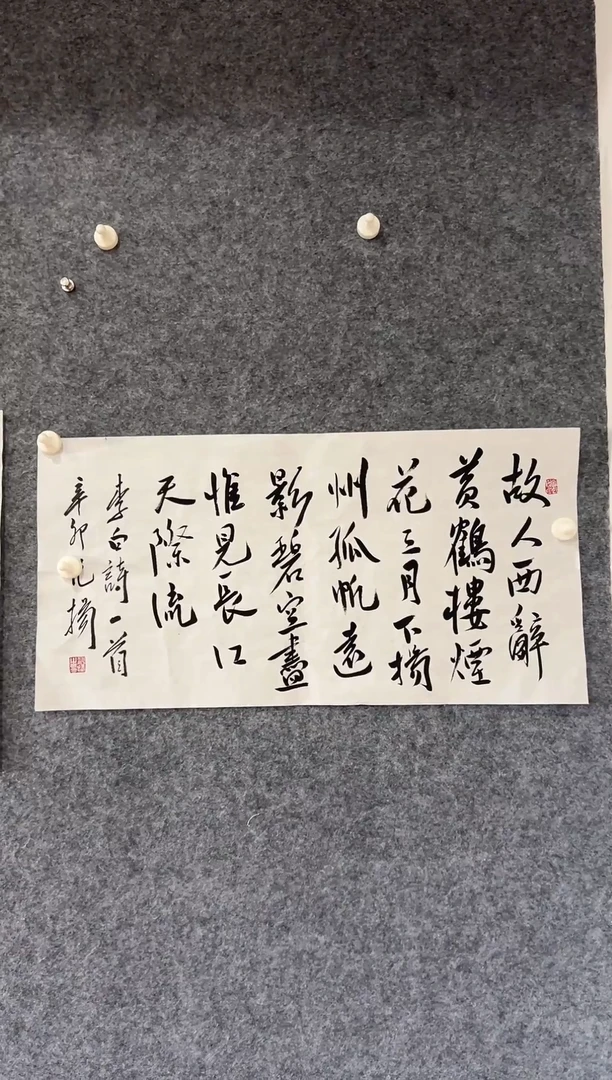 故人西辭
黃鶴樓煙
花三月下揚
州孤帆遠
影碧空盡
惟見長江
天際流
李白詩一首
辛卯